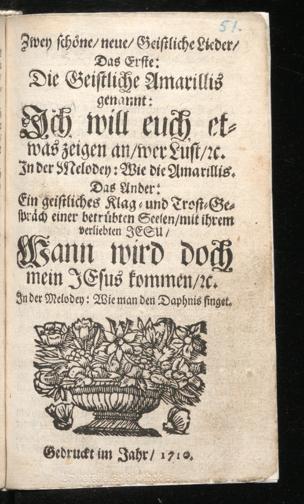 51.
Zwey schöne/ neue/ Geistliche Lieder/
Das Erste:
Die Geistliche Amarillis
genannt:
Ich will euch et-
was zeigen an/ wer Lust/ ꝛc.
In der Melodey: Wie die Amarillis.
Das Ander:
Ein geistliches Klag- und Trost-Ge-
spräch einer betrübten Seelen/ mit ihrem
verliebten JESU/
Wann wird doch
mein JEsus kommen/ ꝛc.
In der Melodey: Wie man den Daphnis singet.
Gedruckt im Jahr/ 1710.